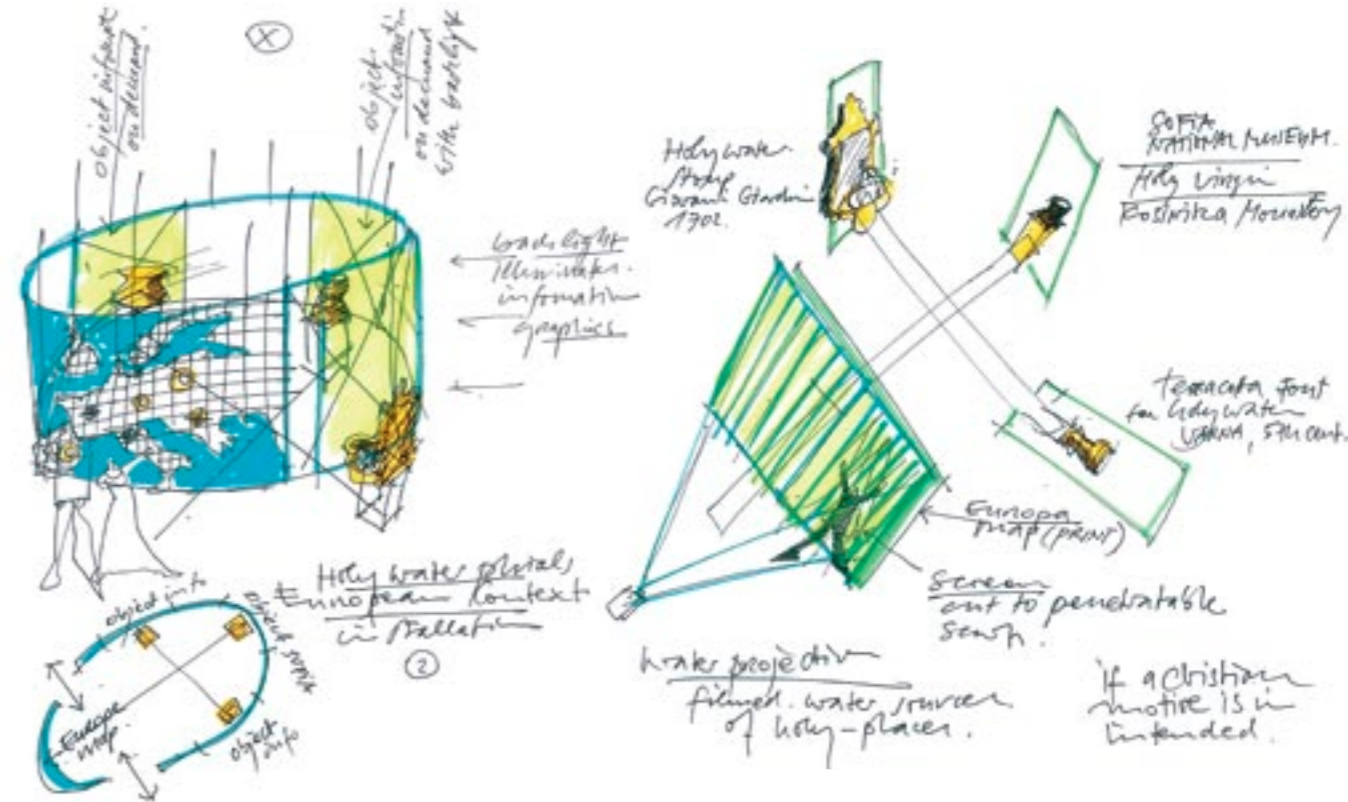 object informat
on demand.
X
object
information
on demand
with backlight
backlight
illuminates
information
graphics
Holy water
European context
installation
2
object info
object sofia
object info
Europe
map
Holy water
stoup
Giovanni Giardini
1702.
SOFIA
NATIONAL MUSEUM.
Holy Virgin
Monastery
Terracotta font
for holy water
VARNA, 5th cent.
Europa
map (PRINT)
Screen
cut to penetratable
water projection
filmed water sources
of holy-places.
if a christian
motive is in
intended.